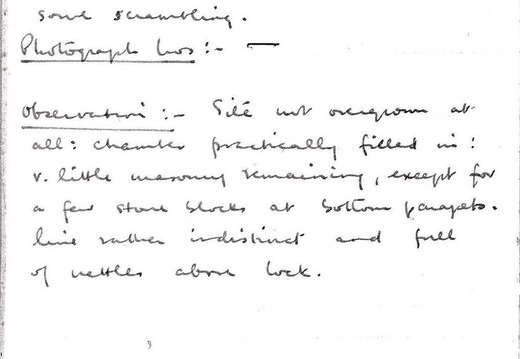 some scrambling.
Photograph Nos :- —
Observations :- Site not overgrown at
all: chamber practically filled in:
v. little masonry remaining, except for
a few stone blocks at bottom parapets.
line rather indistinct and full
of nettles above lock.